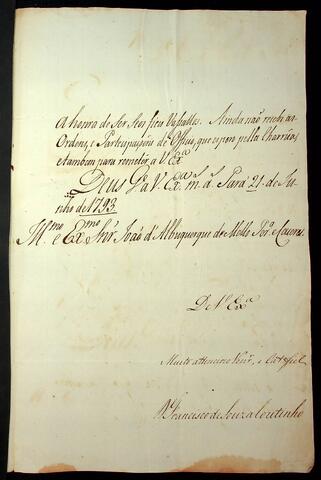 A honra de ser
Ainda não recebi as
Ordens, e Participaçoens de Officio, que espero pella Charrua,
e tambem para remeter a V. Exª
Deos Gᵉ a V. Exª m. aˢ. Pará 21 de Ju
nho de 1793.
Illᵐᵒ e Exᵐᵒ Snr. João d'Albuquerque de Mello Prª e Caceres.
De V. Exª
Muito attencioso Venr. e
D. Francisco de Souza Coutinho